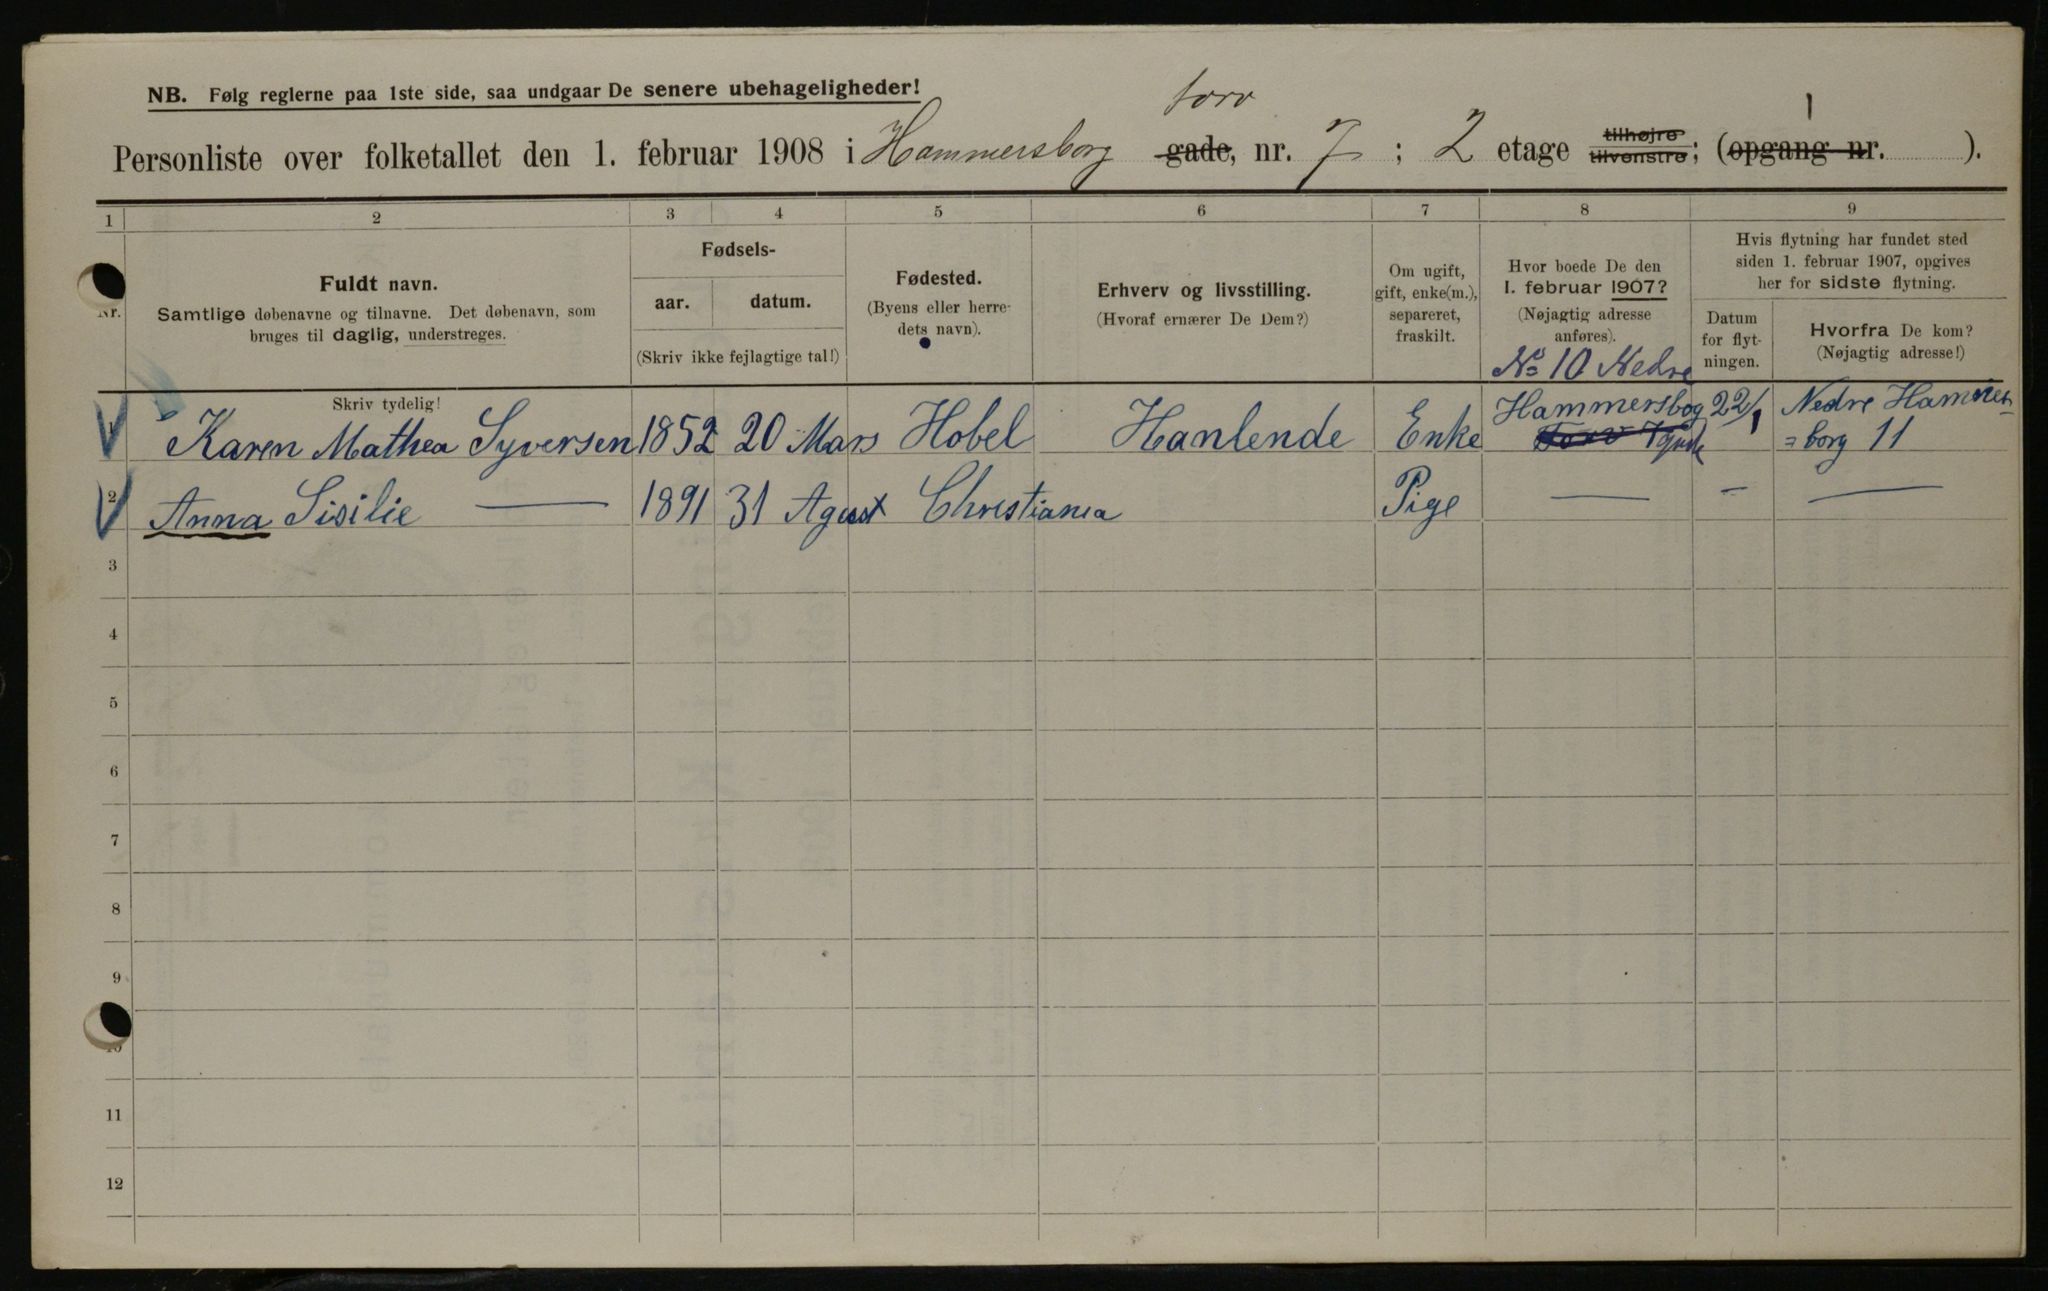 NB. Følg reglerne paa 1ste side, saa undgaar De senere ubehageligheder!
torv 1
Personliste over folketallet den 1. februar 1908 i Hammersborg gade, nr. 7 ; 2 etage tilhøjre tilvenstre; (opgang nr. ).
1 2 3 4 5 6 7 8 9
Nr.
Fuldt navn.
Samtlige døbenavne og tilnavne. Det døbenavn, som
bruges til daglig, understreges.
Skriv tydelig!
Fødsels-
aar. datum.
(Skriv ikke fejlagtige tal!)
Fødested.
(Byens eller herre-
dets navn).
Erhverv og livsstilling.
(Hvoraf ernærer De Dem?)
Om ugift,
gift, enke(m.),
separeret,
fraskilt.
Hvor boede De den
1. februar 1907?
(Nøjagtig adresse
anføres).
Hvis flytning har fundet sted
siden 1. februar 1907, opgives
her for sidste flytning.
Datum
for flyt-
ningen.
Hvorfra De kom?
(Nøjagtig adresse!)
No 10 Nedre
Hammersbog 22/1 Nedre Hammer-
1 Karen Mathea Syversen 1852 20 Mars Hobel Hanlende Enke Torv =borg 11
2 Anna Sisilie — 1891 31 Agust Christiania Pige — — —
3
4
5
6
7
8
9
10
11
12